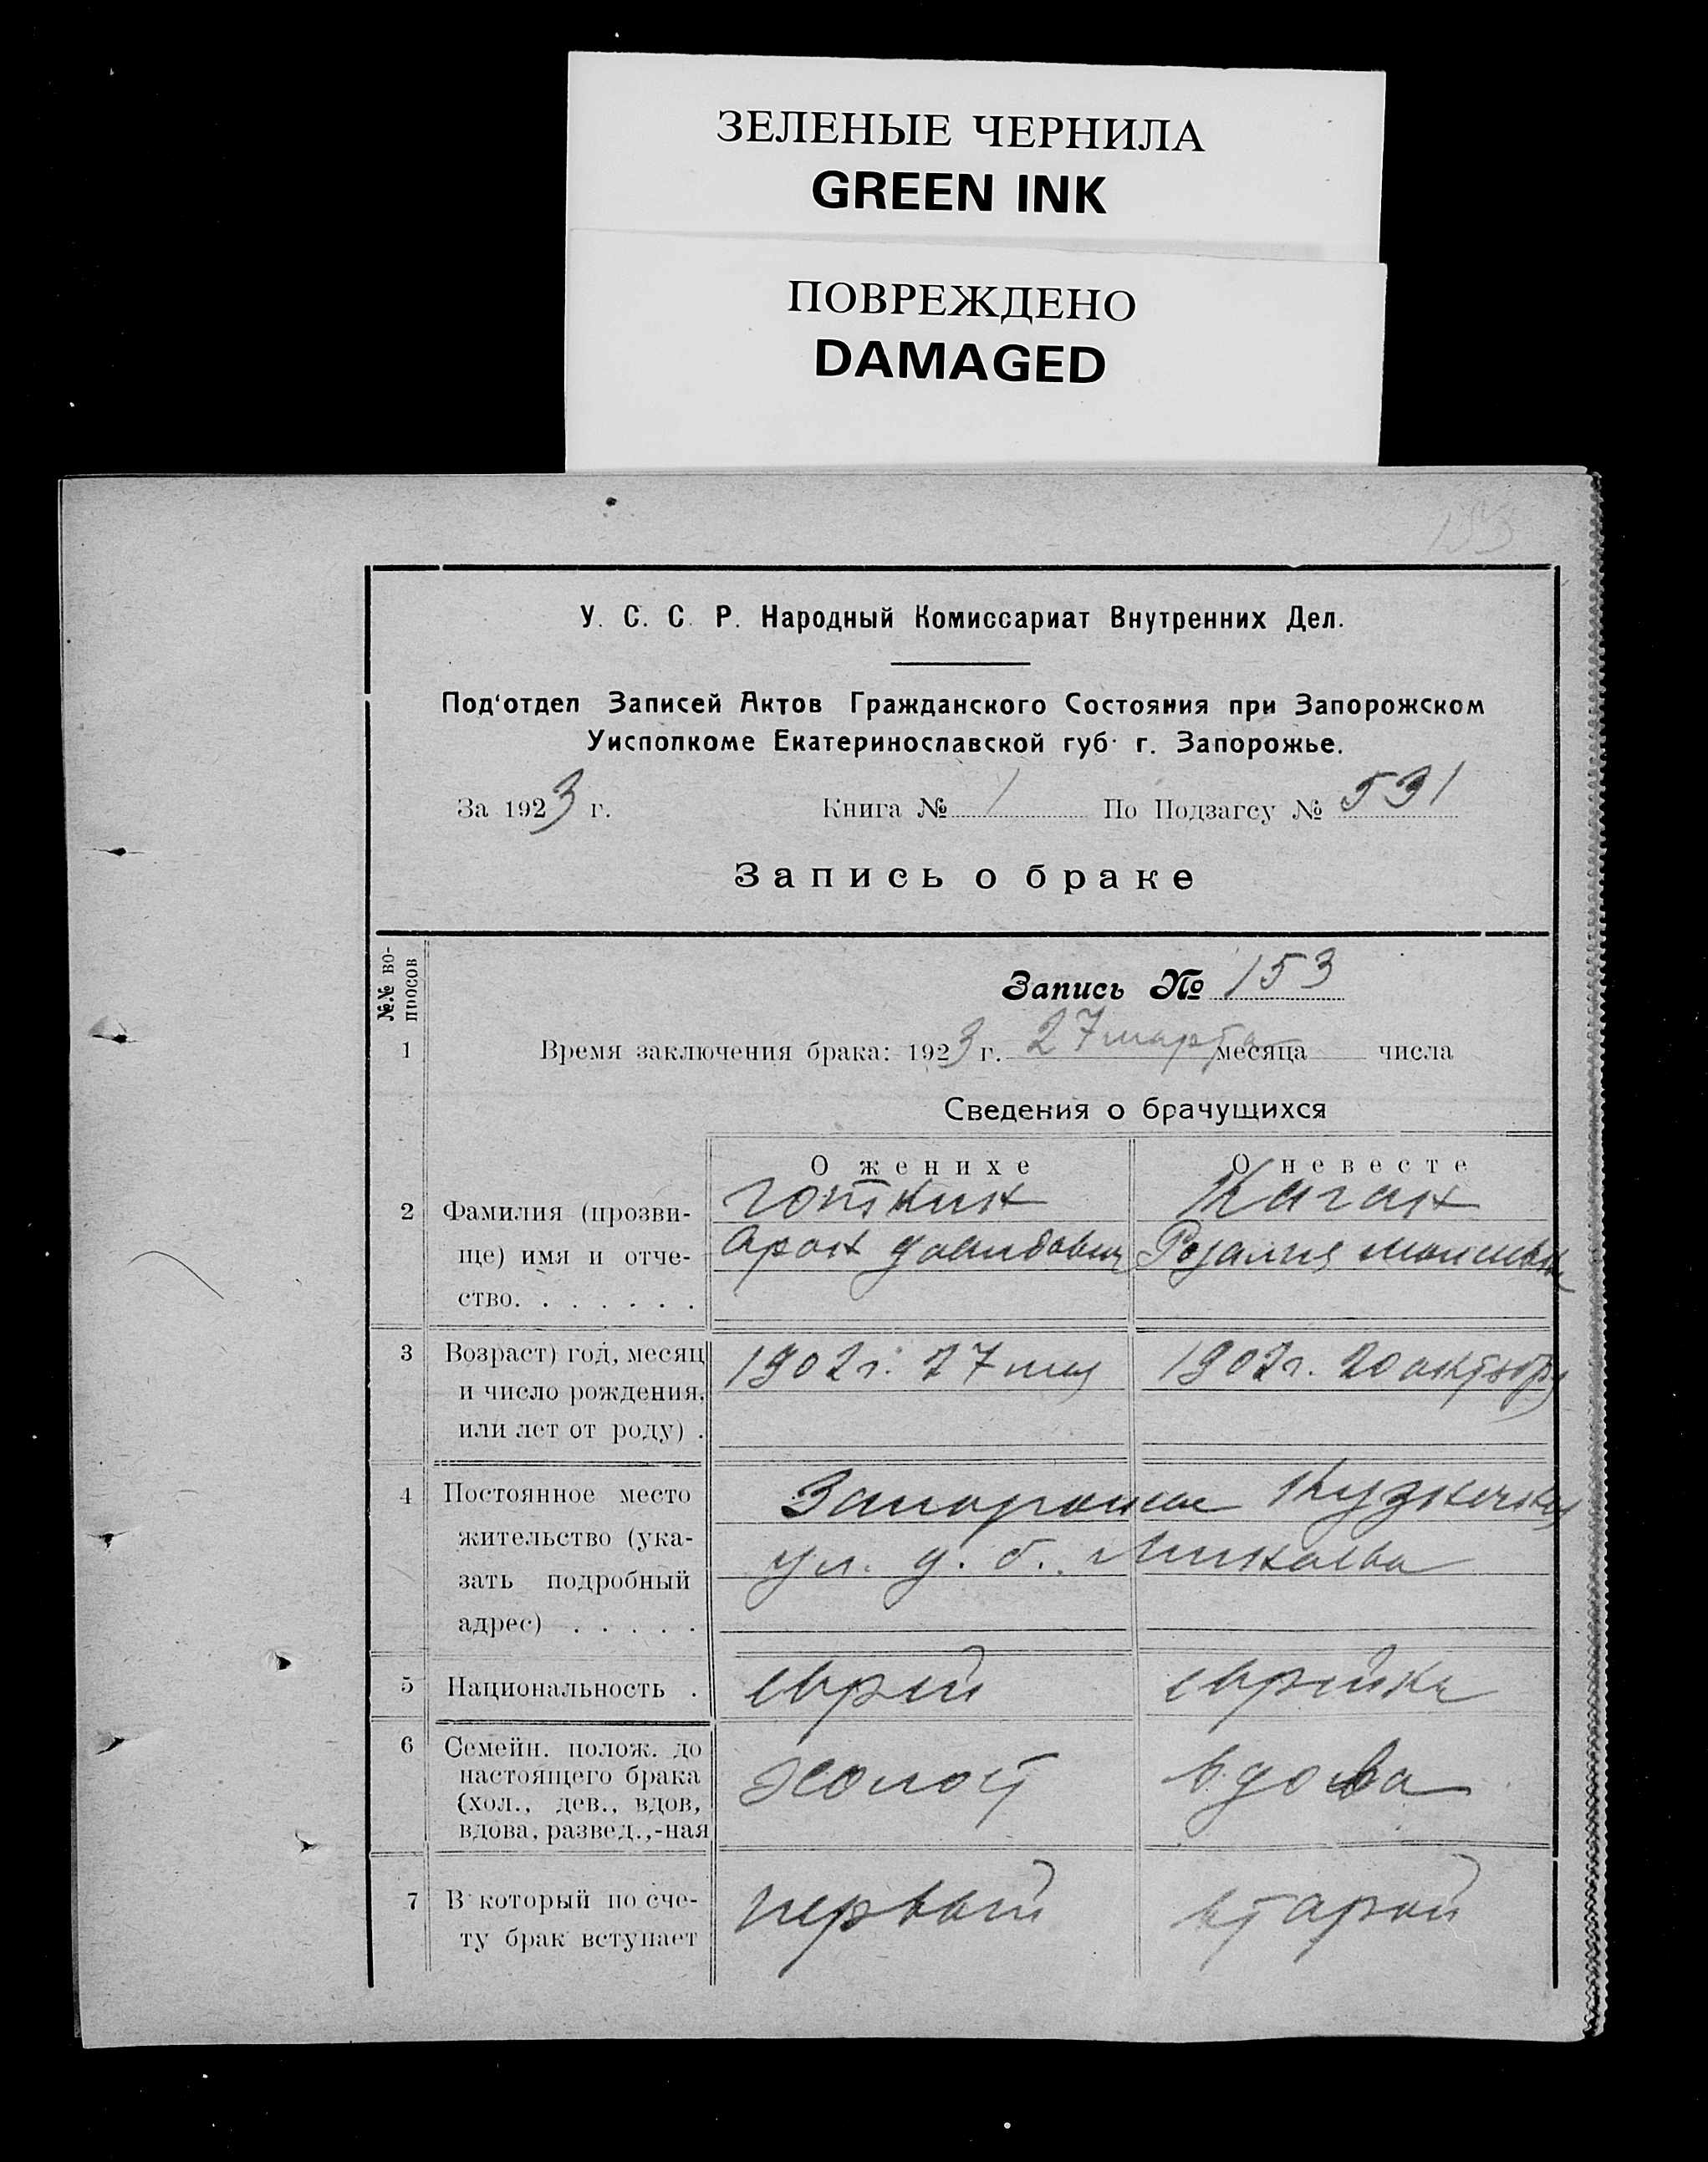 ЗЕЛЕНЫЕ ЧЕРНИЛА
GREEN INK
ПОВРЕЖДЕНО
DAMAGED
153
У. С. С. Р. Народный Комиссариат Внутренних Дел.
Под‘отдел Записей Актов Гражданского Состояния при Запорожском
Уисполкоме Екатеринославской губ. г. Запорожье.
За 1923 г. Книга № 1 По Подзагсу № 531
Запись о браке
№№ вопросов
Запись № 153
1 Время заключения брака: 1923 г. 27 марта месяца числа
Сведения о брачущихся
О женихе О невесте
2 Фамилия (прозви- Готкин Каган
ще) имя и отче- Арон Давидович Розалия
ство. . . . . . .
3 Возраст) год, месяц 1902 г. 27 мая 1902 г. 20 октября
и число рождения,
или лет от роду) .
4 Постоянное место Запорожье Кузнечная
жительство (ука- ул. д. б.
зать подробный
адрес) . . . . .
5 Национальность . еврей еврейка
6 Семейн. полож. до
настоящего брака холост вдова
(хол., дев., вдов,
вдова, развед.,-ная
7 В который по сче- первый второй
ту брак вступает